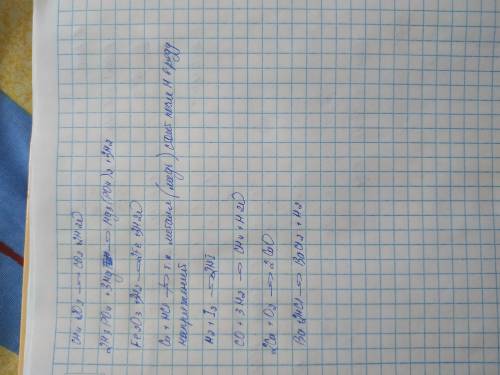 CH4 + 2O2 => CO2 + 2H2O
2H3PO4 + 3Mg => Mg3(PO4)2 + 3H2
Fe2O3 + 3H2 => 2Fe + 3H2O
Cu + HCl т.к. металл (медь) стоит после H в ряду
напряжений
H2 + I2 => 2HI
CO + 3H2 => CH4 + H2O
2Ca + O2 => 2CaO
Ba + 2HCl => BaCl2 + H2